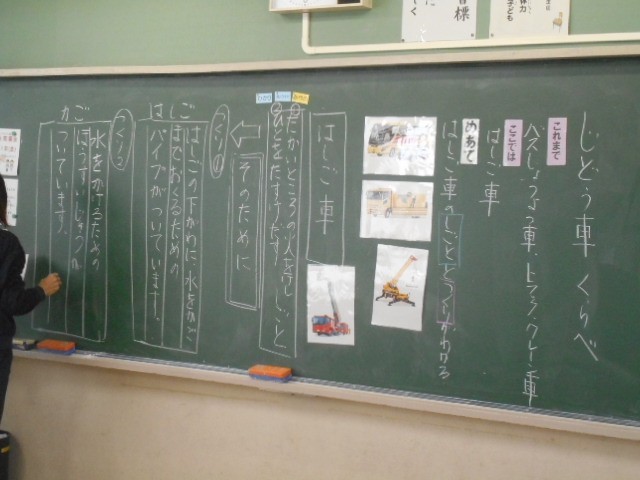 じどう車くらべ
これまで
バスじょうよう車、トラック、クレーン車
ここでは
はしご車
めあて
はしご車のしごととつくりがわかる
はしご車
しごと
たかいところの火をけし
人をたすけだす
そのために
つくり①
はしごの下がわに、水をかご
までおくるための
パイプがついています。
はしご
つくり②
水をかけるための
ついています。
かご